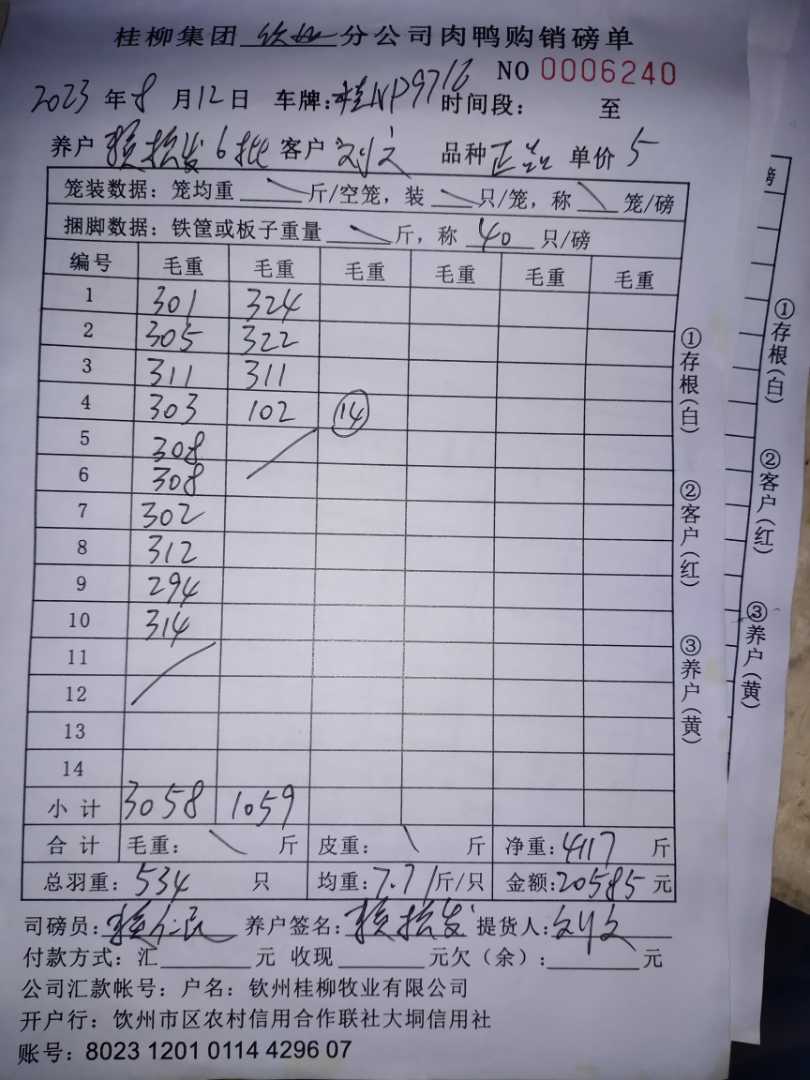 桂柳集团 钦州 分公司肉鸭购销磅单
NO 0006240
2023 年 8 月 12 日 车牌: 桂NP9716 时间段: 至
养户 赖振发 6批 客户 刘文 品种 正品 单价 5
笼装数据: 笼均重 斤/空笼, 装 只/笼, 称 笼/磅
捆脚数据: 铁筐或板子重量 斤, 称 40 只/磅
编号 毛重 毛重 毛重 毛重 毛重 毛重
1 301 324
2 305 322
3 311 311
4 303 102 14
5 308
6 308
7 302
8 312
9 294
10 314
11
12
13
14
小计 3058 1059
合计 毛重: 斤 皮重: 斤 净重: 4117 斤
总羽重: 534 只 均重: 7.71 斤/只 金额: 20585 元
司磅员: 赖仁民 养户签名: 赖振发 提货人: 刘文
付款方式: 汇 元 收现 元欠(余): 元
公司汇款帐号: 户名: 钦州桂柳牧业有限公司
开户行: 饮州市区农村信用合作联社大垌信用社
账号: 8023 1201 0114 4296 07
①存根(白)
②客户(红)
③养户(黄)
磅
①存根(白)
②客户(红)
③养户(黄)